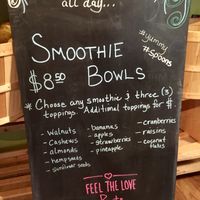 all day...
#yummy
#spoons
SMOOTHIE
$8.50 BOWLS
* Choose any smoothie & three (3)
toppings. Additional toppings for $
- Walnuts
- Cashews
- almonds
- hempseeds
- sunflower seeds
- bananas
- apples
- strawberries
- pineapple
- cranberries
- raisins
- coconut
flakes
FEEL THE LOVE